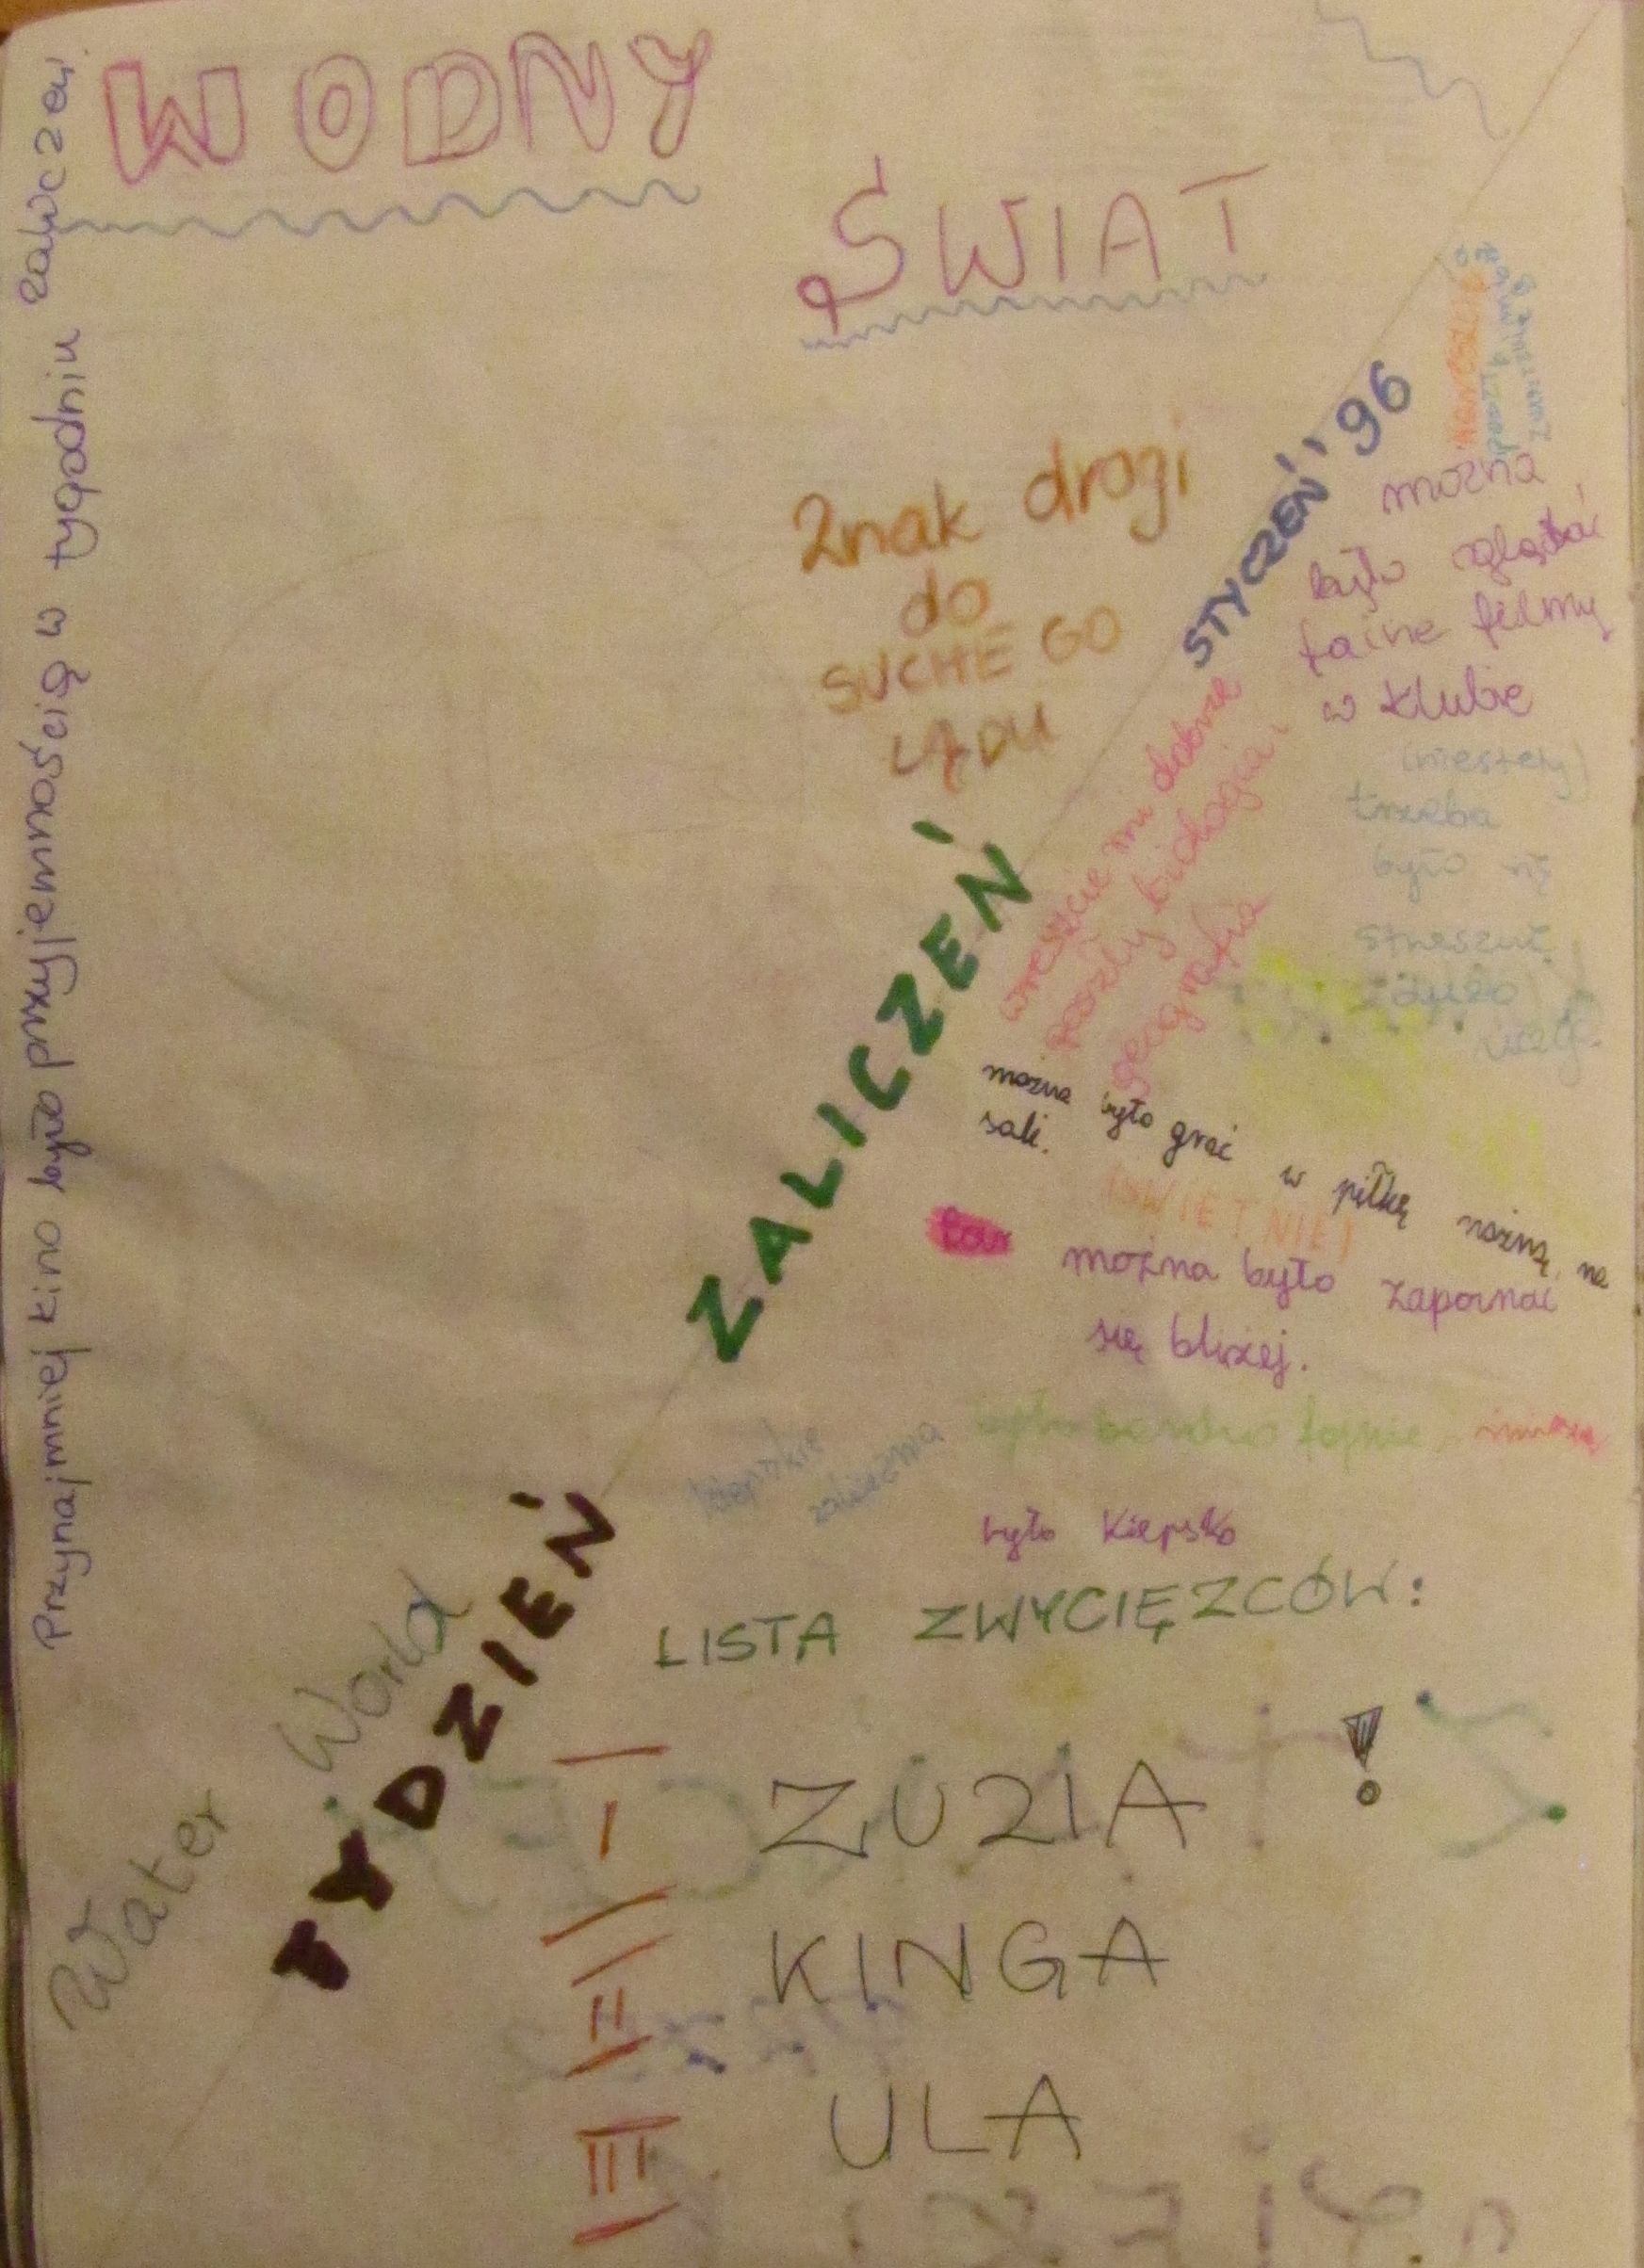 WODNY
ŚWIAT
Przynajmniej kino było przyjemnością w tygodniu zaliczeń.
Znak drogi
do
SUCHEGO
LĄDU
TYDZIEŃ ZALICZEŃ STYCZEŃ '96
można
było oglądać
fajne filmy
w klubie
(niestety)
trzeba
było się
streszczać
dużo
wreszcie mi dobrze
poszły biologia i
geografia
można było grać w piłkę nożną na
sali.
ŚWIETNIE!
można było zapoznać
się bliżej.
kiepskie
zaliczenia
było bardzo fajnie
było kiepsko
Water World
LISTA ZWYCIĘZCÓW:
I ZUZIA !
II KINGA
III ULA